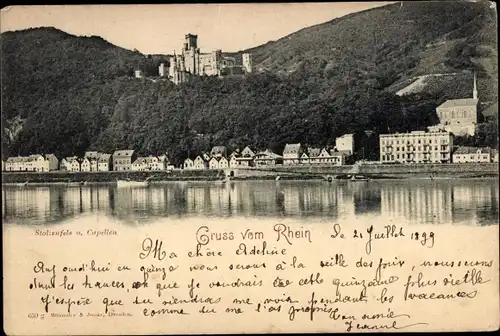 Stolzenfels u. Capellen
Gruss vom Rhein.
Le 21 Juillet 1899
Ma chère Adeline
Aujourd'hui en quinze nous serons à la veille de partir, nous serons
dans les
que je voudrais être cette quinzaine plus vieille
J'espère que tu viendras me voir pendant les vacances
comme tu me l'as promis
Ton amie
Jeanne
659 g
Dresden.